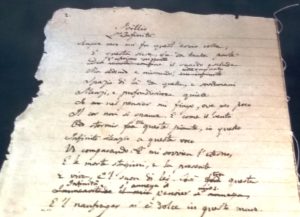 Idillio
L'Infinito
Sempre caro mi fu quest'ermo colle
E questa siepe, che da tanta parte
il guardo esclude.
Ma sedendo e mirando,
Spazio di là da quella, e sovrumani
Silenzi, e profondissima quiete
Io nel pensier mi fingo, ove per poco
Il cor non si spaura. E come il vento
Odo stormir fra queste piante, io quello
Infinito silenzio a questa voce
Vo comparando: e mi sovvien l'eterno,
E le morte stagioni, e la presente
E viva, e 'l suon di lei. Così tra questa
E 'l naufragar m'è dolce in questo mare.